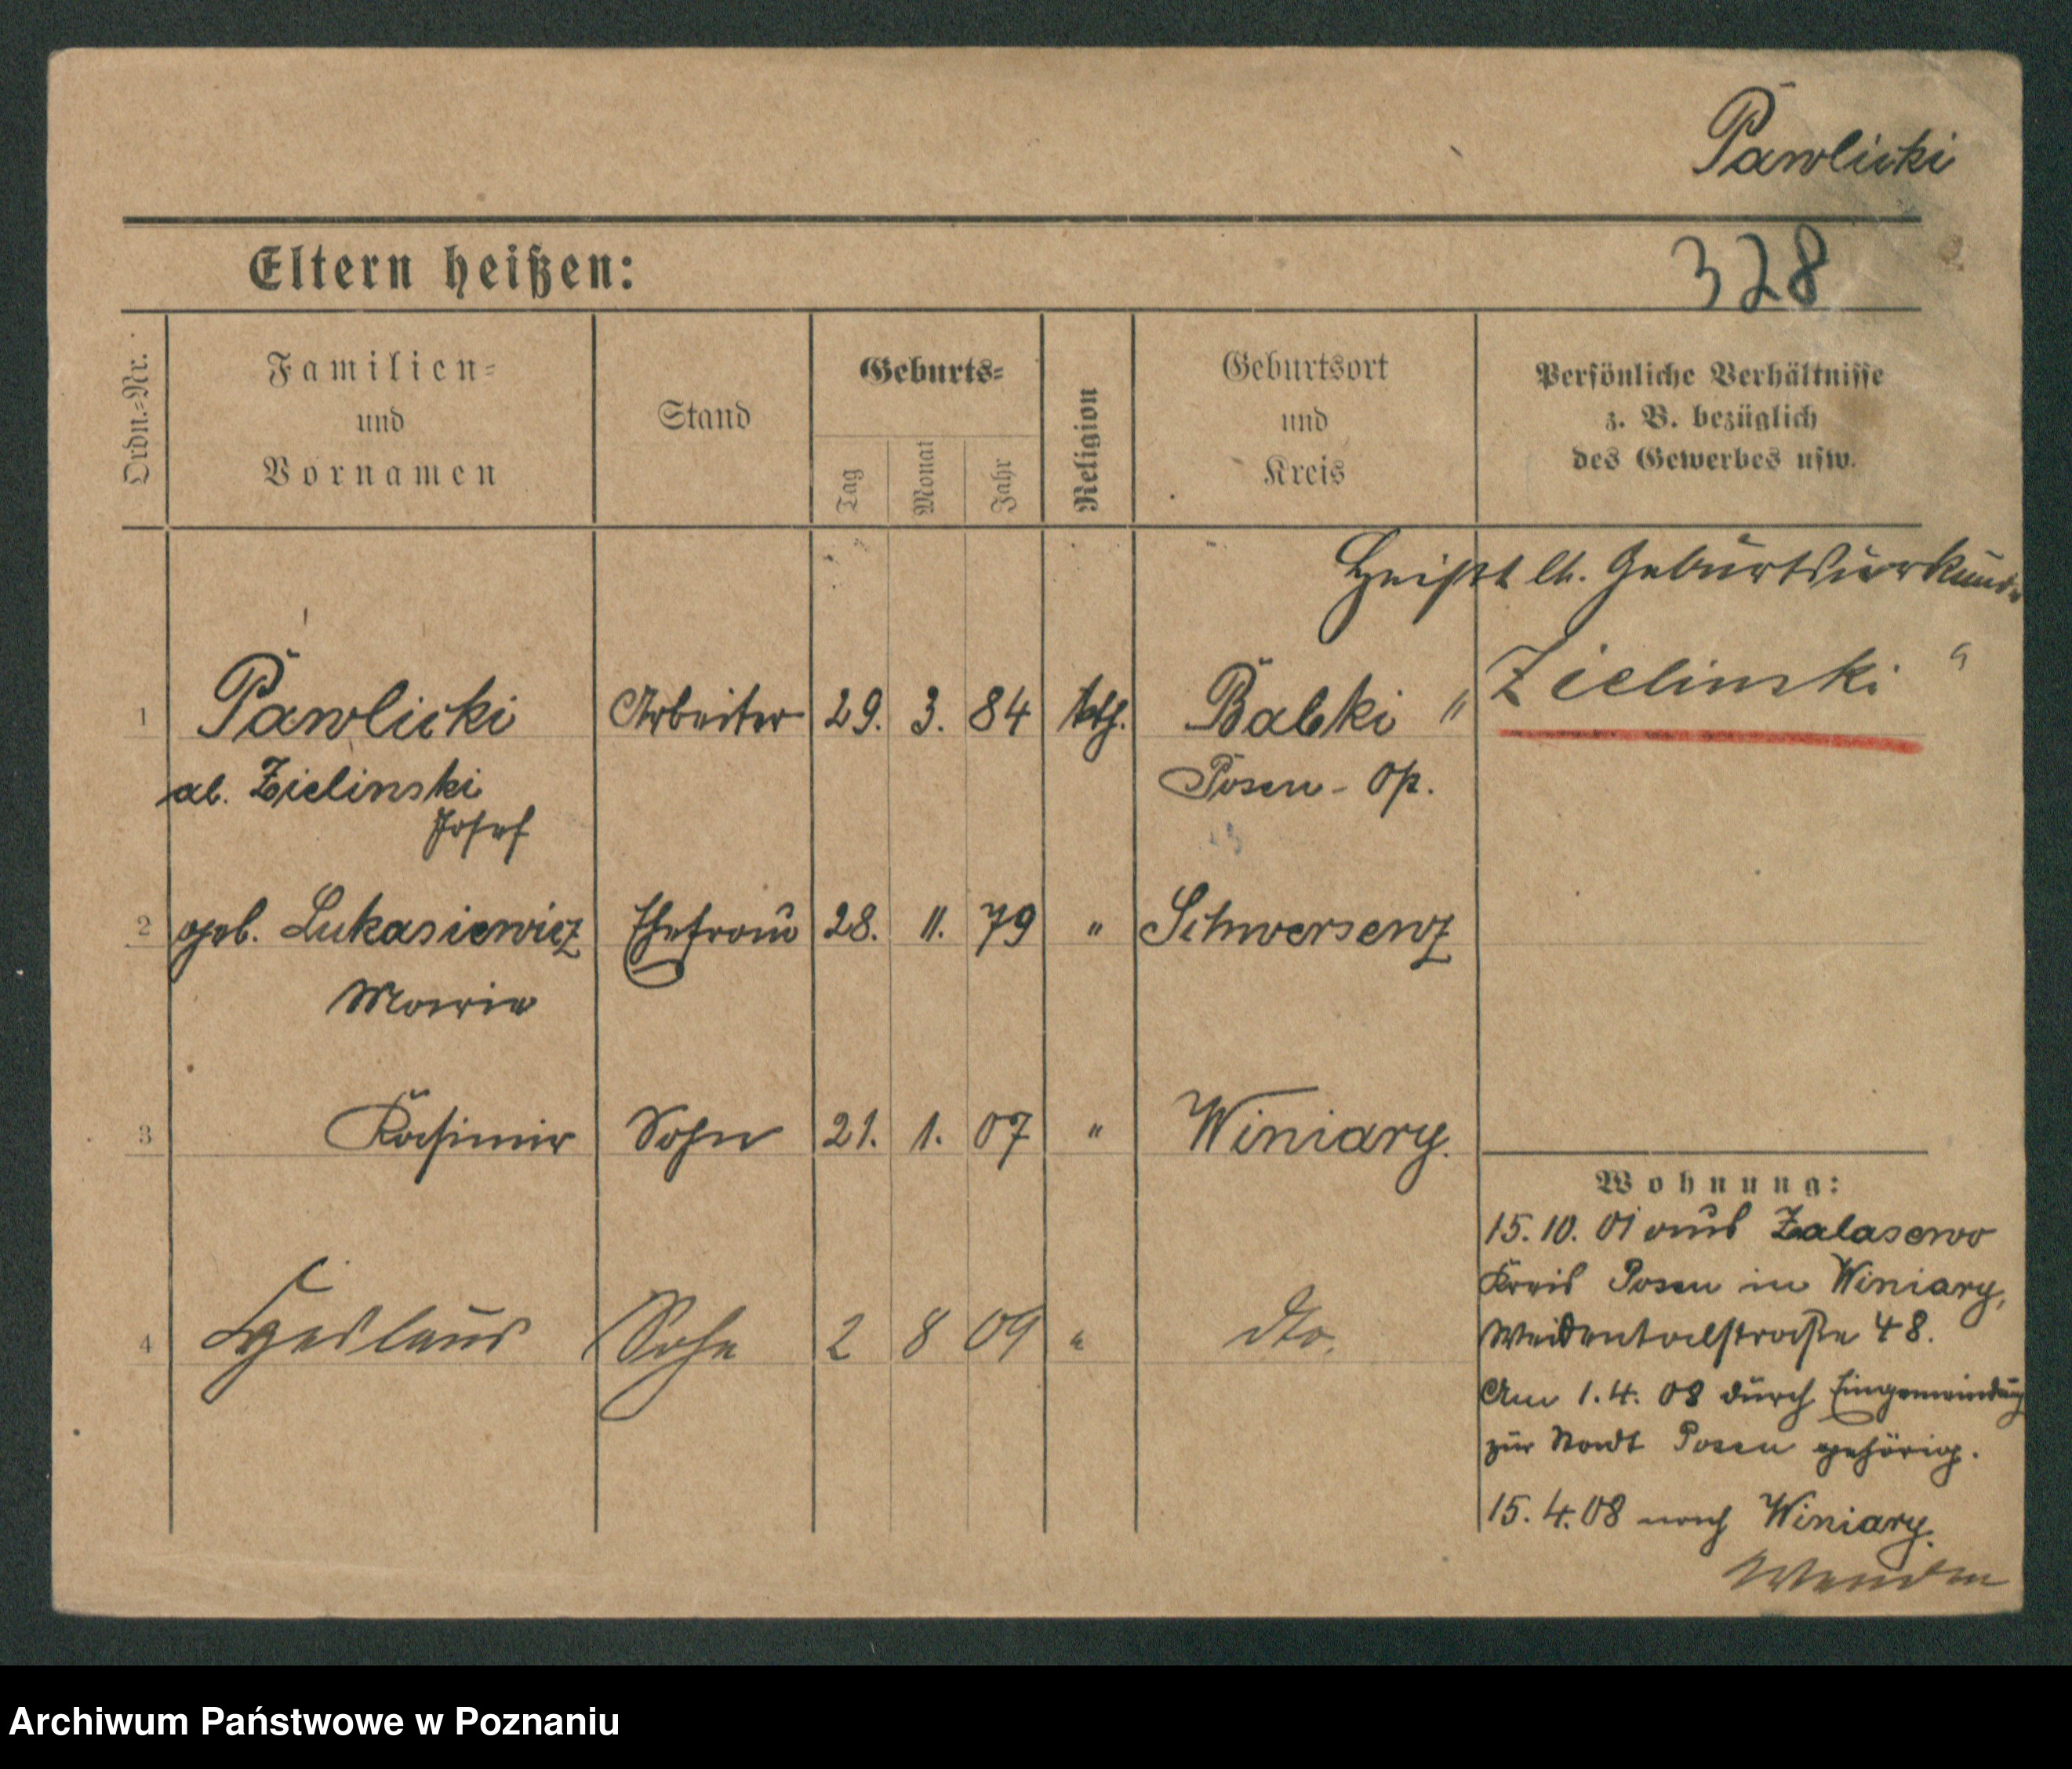 Pawlicki
Eltern heißen:
328
Ordn.-Nr.
Familien-
und
Vornamen
Stand
Geburts-
Tag
Monat
Jahr
Religion
Geburtsort
und
Kreis
Persönliche Verhältnisse
z. B. bezüglich
des Gewerbes usw.
Heißt lt. Geburtsurkunde
1 Pawlicki Arbeiter 29. 3. 84 kth. Babki " Zielinski "
al. Zielinski Posen - Op.
Josef
2 geb. Lukasiewicz Ehefrau 28. 11. 79 " Schwersenz
Maria
3 Kasimir Sohn 21. 1. 07 " Winiary.
Wohnung:
15. 10. 01 aus Zalasewo
Kreis Posen in Winiary,
4 Sohn 2 8 09 " dto.
Weidentalstraße 48.
Am 1. 4. 08 durch Eingemeindung
zur Stadt Posen gehörig.
15. 4. 08 nach Winiary.
Wenden
Archiwum Państwowe w Poznaniu